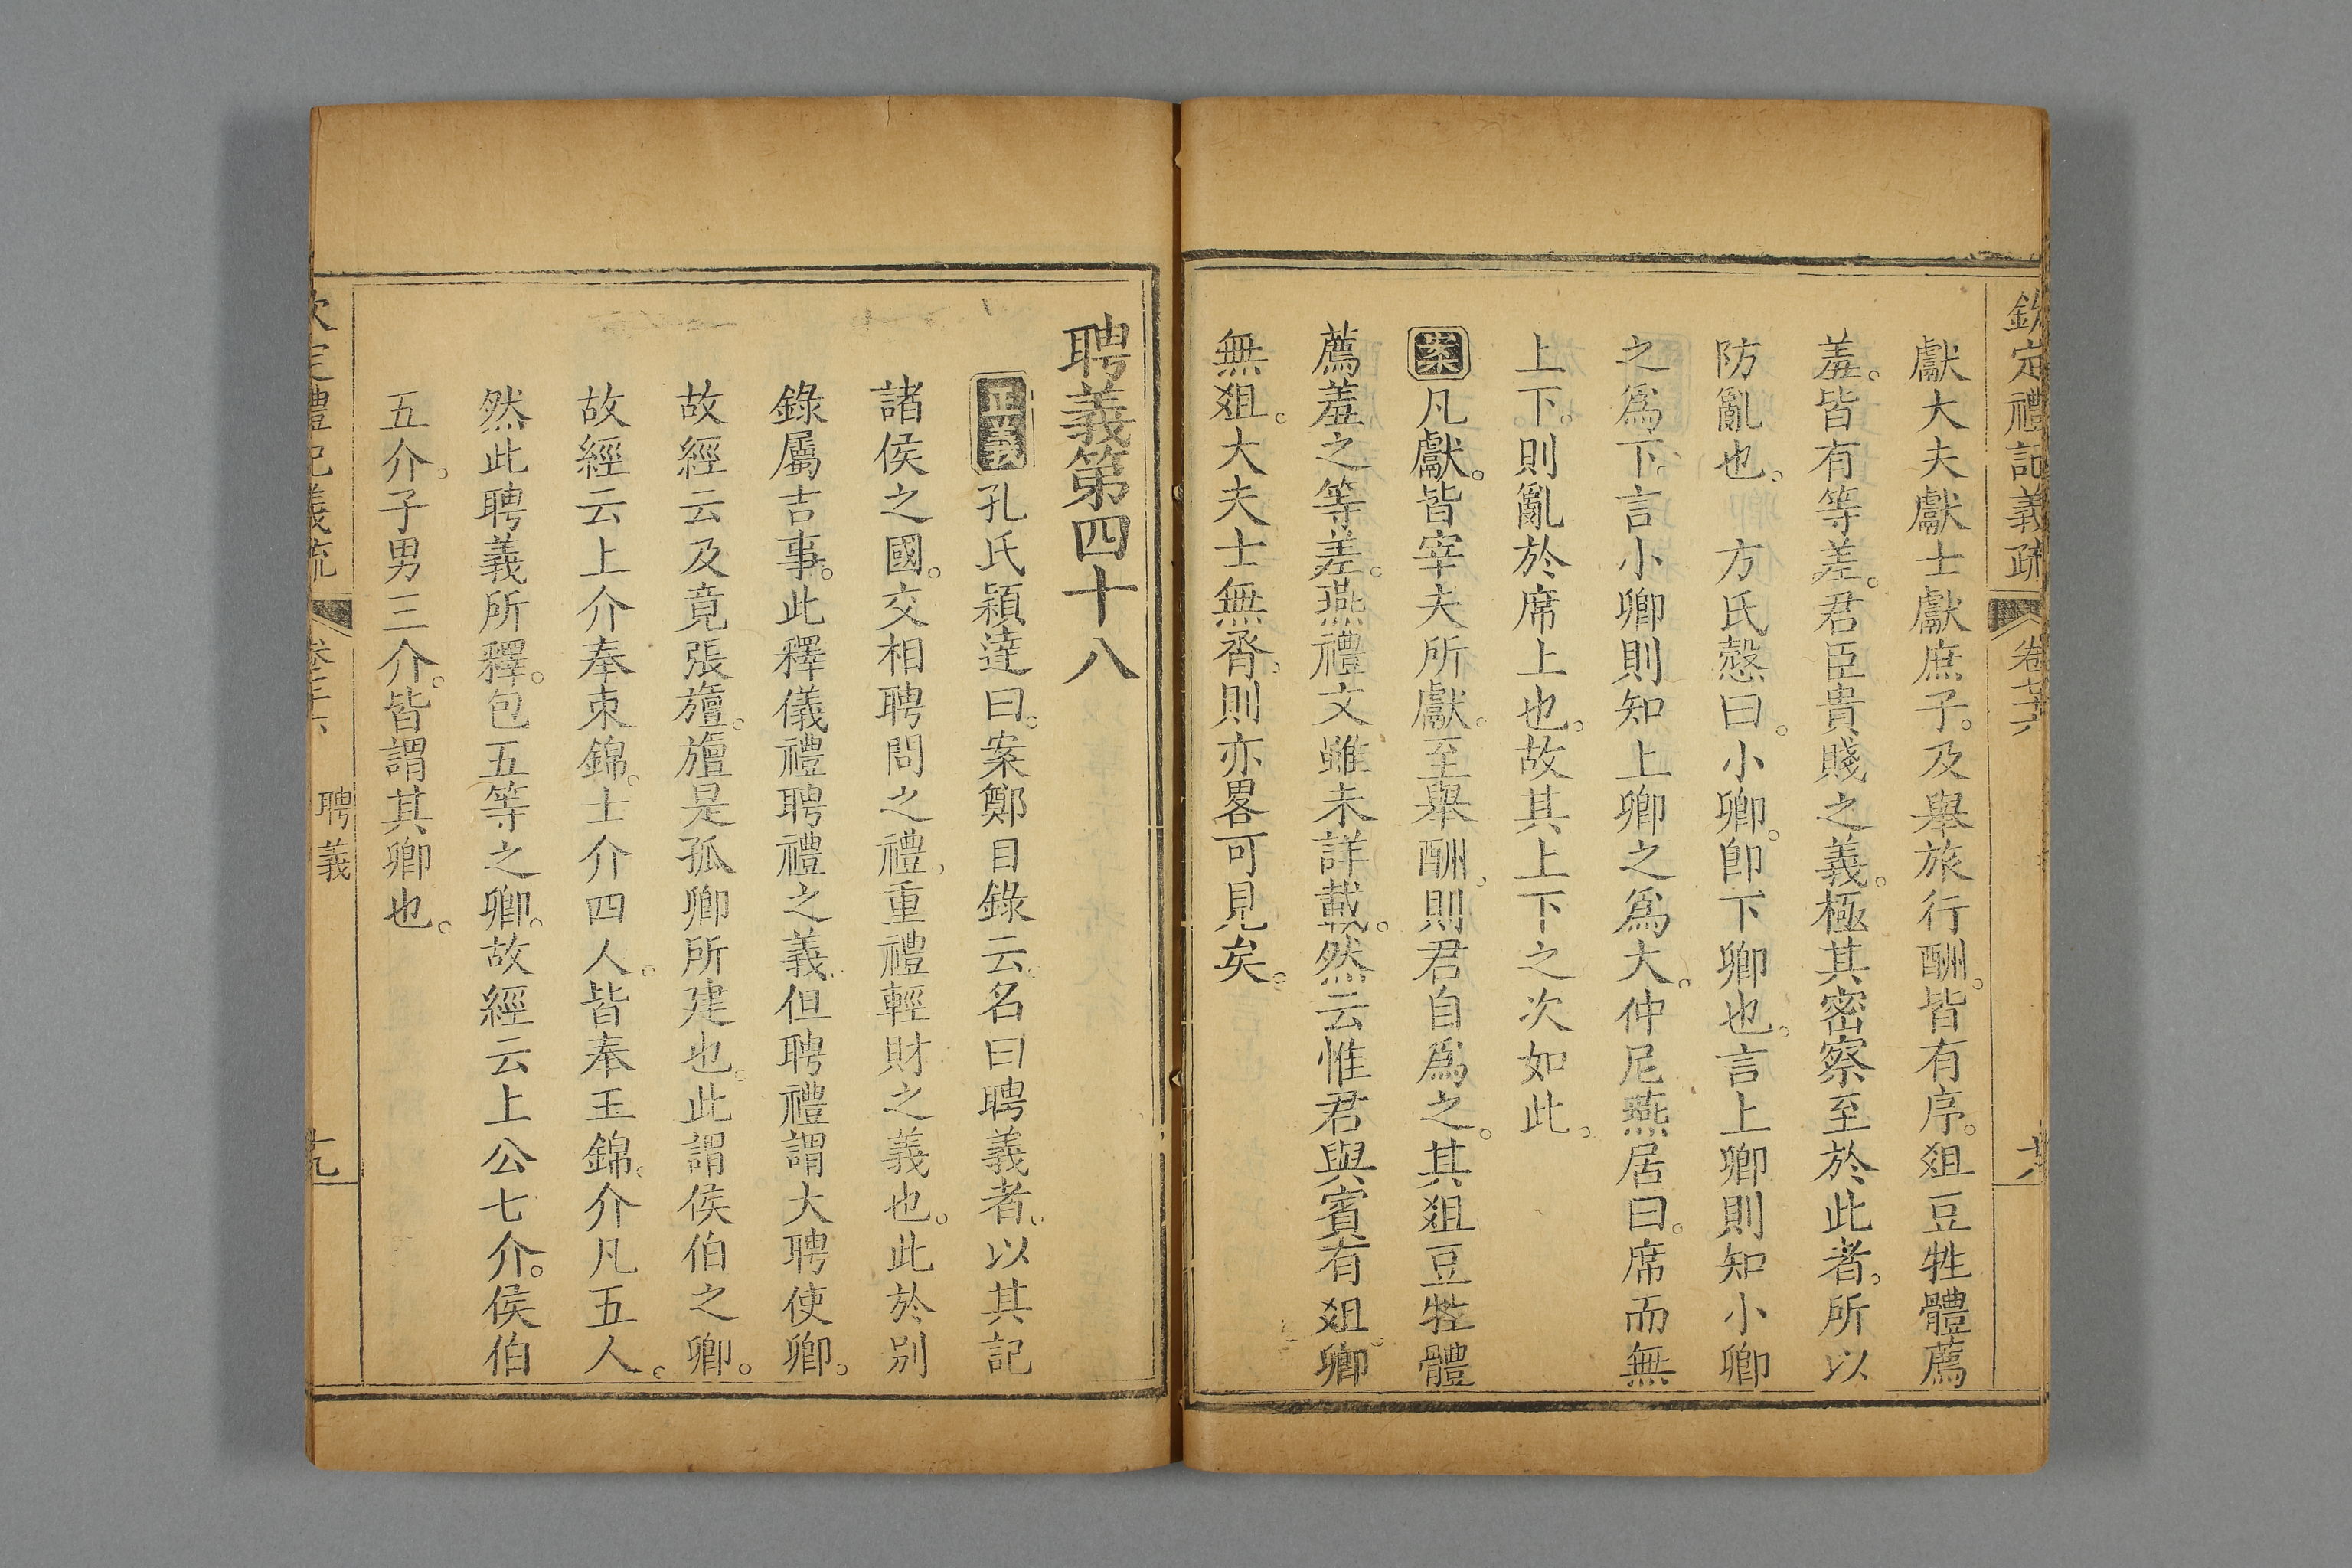 欽定禮記義疏 卷七十六 十八
獻大夫獻士獻庶子。及舉旅行酬。皆有序。俎豆牲體薦
羞。皆有等差。君臣貴賤之義。極其密察至於此者。所以
防亂也。方氏慤曰。小卿。卽下卿也。言上卿則知小卿
之爲下。言小卿則知上卿之爲大。仲尼燕居曰。席而無
上下。則亂於席上也。故其上下之次如此。
案凡獻。皆宰夫所獻。至舉酬。則君自爲之。其俎豆牲體
薦羞之等差。燕禮文雖未詳載。然云惟君與賓有俎。卿
無俎。大夫士無脀。則亦畧可見矣。
聘義第四十八
正義孔氏穎達曰。案鄭目錄云。名曰聘義者。以其記
諸侯之國。交相聘問之禮。重禮輕財之義也。此於別
錄屬吉事。此釋儀禮聘禮之義。但聘禮謂大聘使卿。
故經云及竟張旜。旜是孤卿所建也。此謂侯伯之卿。
故經云上介奉束錦。士介四人。皆奉玉錦。介凡五人。
然此聘義所釋。包五等之卿。故經云上公七介。侯伯
五介。子男三介。皆謂其卿也。
欽定禮記義疏 聘義 十九